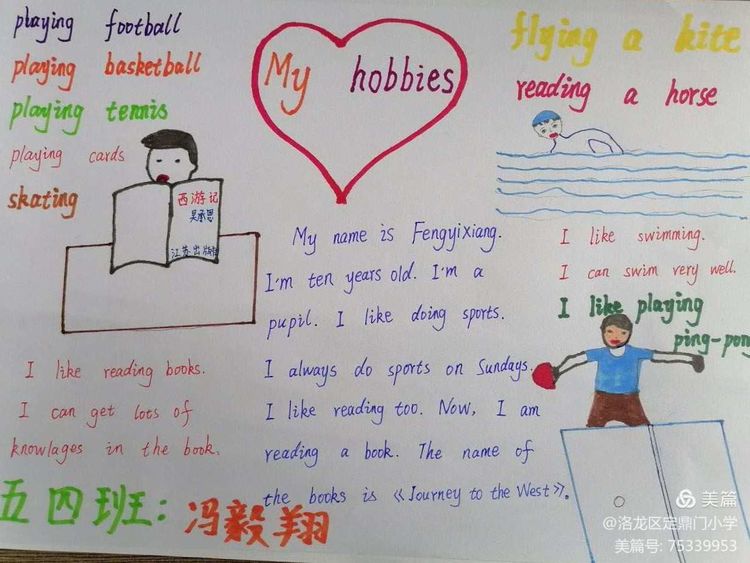 playing football
playing basketball
playing tennis
playing cards
skating
My hobbies
flying a kite
reading a horse
西游记
吴承恩
江苏出版社
I like swimming.
I can swim very well.
I like playing
ping-pong
My name is Fengyixiang.
I'm ten years old. I'm a
pupil. I like doing sports.
I always do sports on Sundays.
I like reading too. Now, I am
reading a book. The name of
the books is 《Journey to the West》.
I like reading books.
I can get lots of
knowlages in the book.
五四班：冯毅翔
美篇
@洛龙区定鼎门小学
美篇号: 75339953